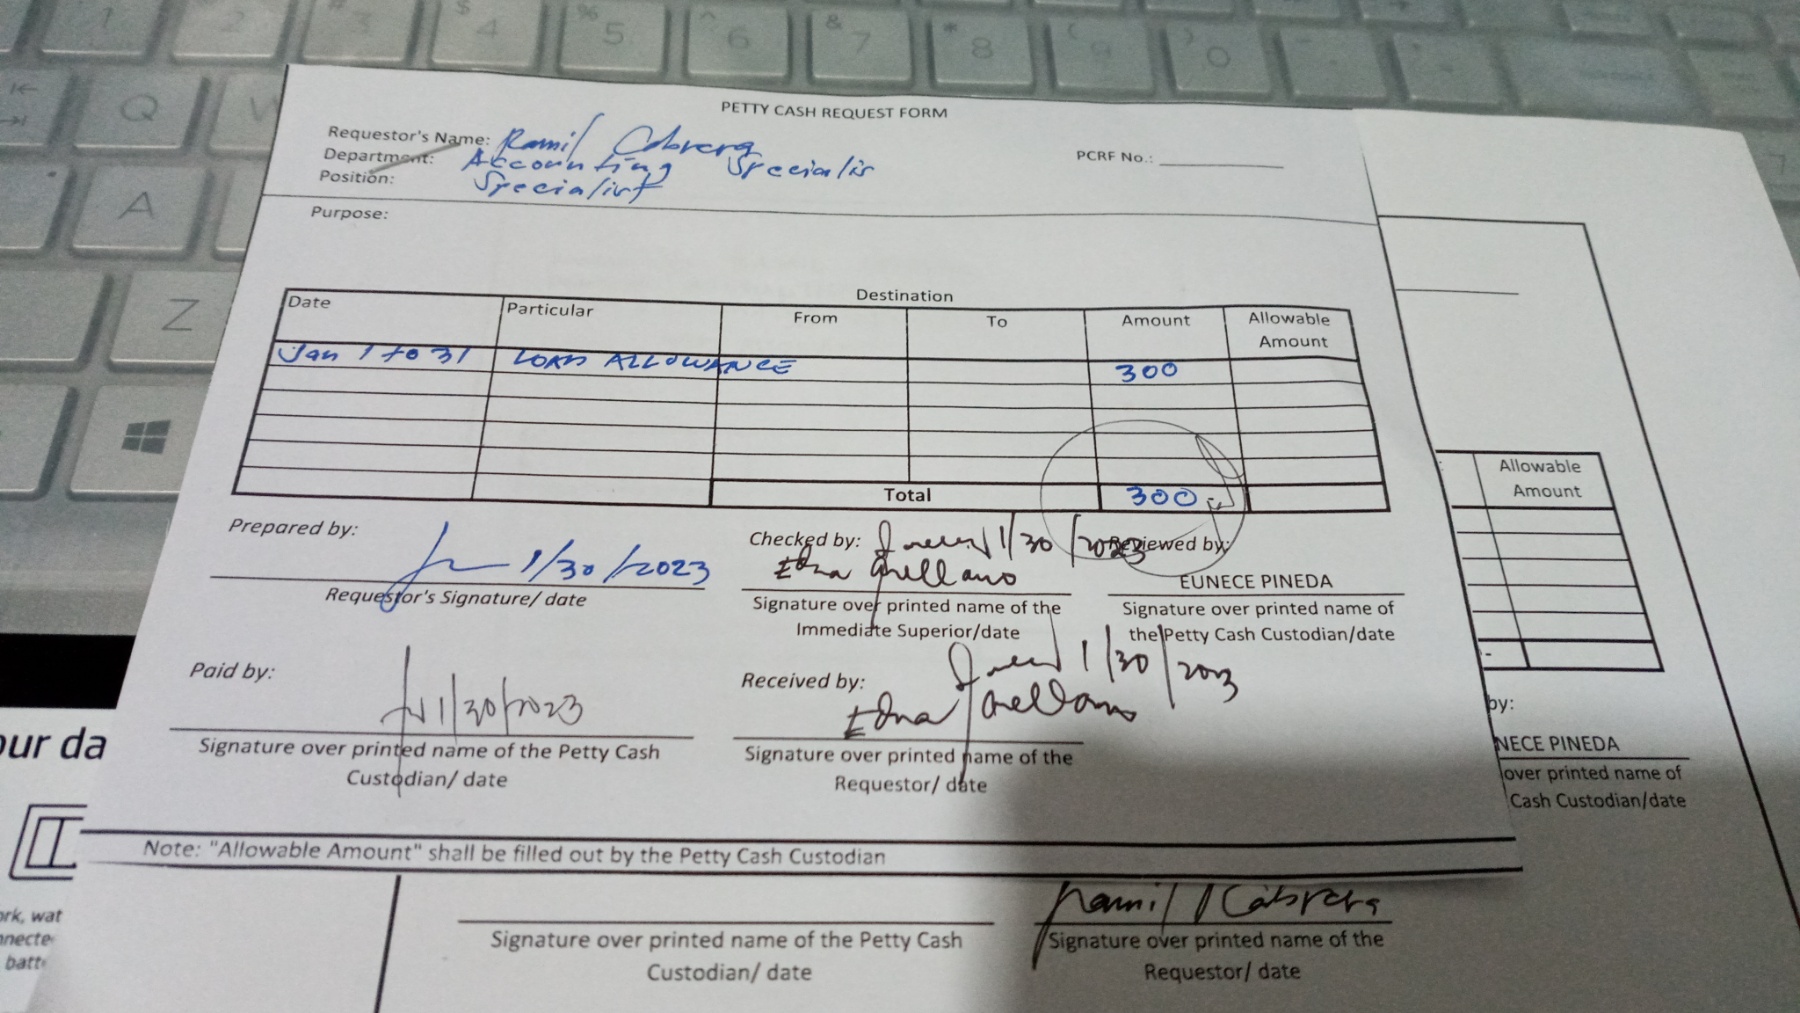 PETTY CASH REQUEST FORM
Requestor's Name: Ramil Cabrera
PCRF No.:
Department: Accounting Specialis
Position: Specialist
Purpose:
Destination
Date Particular From To Amount Allowable Amount
Jan 1 to 31 LOAD ALLOWANCE 300
Total 300
Prepared by: 1/30/2023
Requestor's Signature/ date
Checked by: 1/30/2023
Edna Arellano
Signature over printed name of the
Immediate Superior/date
Reviewed by:
EUNECE PINEDA
Signature over printed name of
the Petty Cash Custodian/date
Paid by:
1/30/2023
Signature over printed name of the Petty Cash
Custodian/ date
Received by: 1/30/2023
Edna Arellano
Signature over printed name of the
Requestor/ date
Note: "Allowable Amount" shall be filled out by the Petty Cash Custodian
Signature over printed name of the Petty Cash
Custodian/ date
Ramil Cabrera
Signature over printed name of the
Requestor/ date
Allowable
Amount
by:
NECE PINEDA
over printed name of
Cash Custodian/date
our da
ork, wat
nnecte
batt
Q
W
A
Z
$ 4
% 5
^ 6
& 7
* 8
( 9
) 0